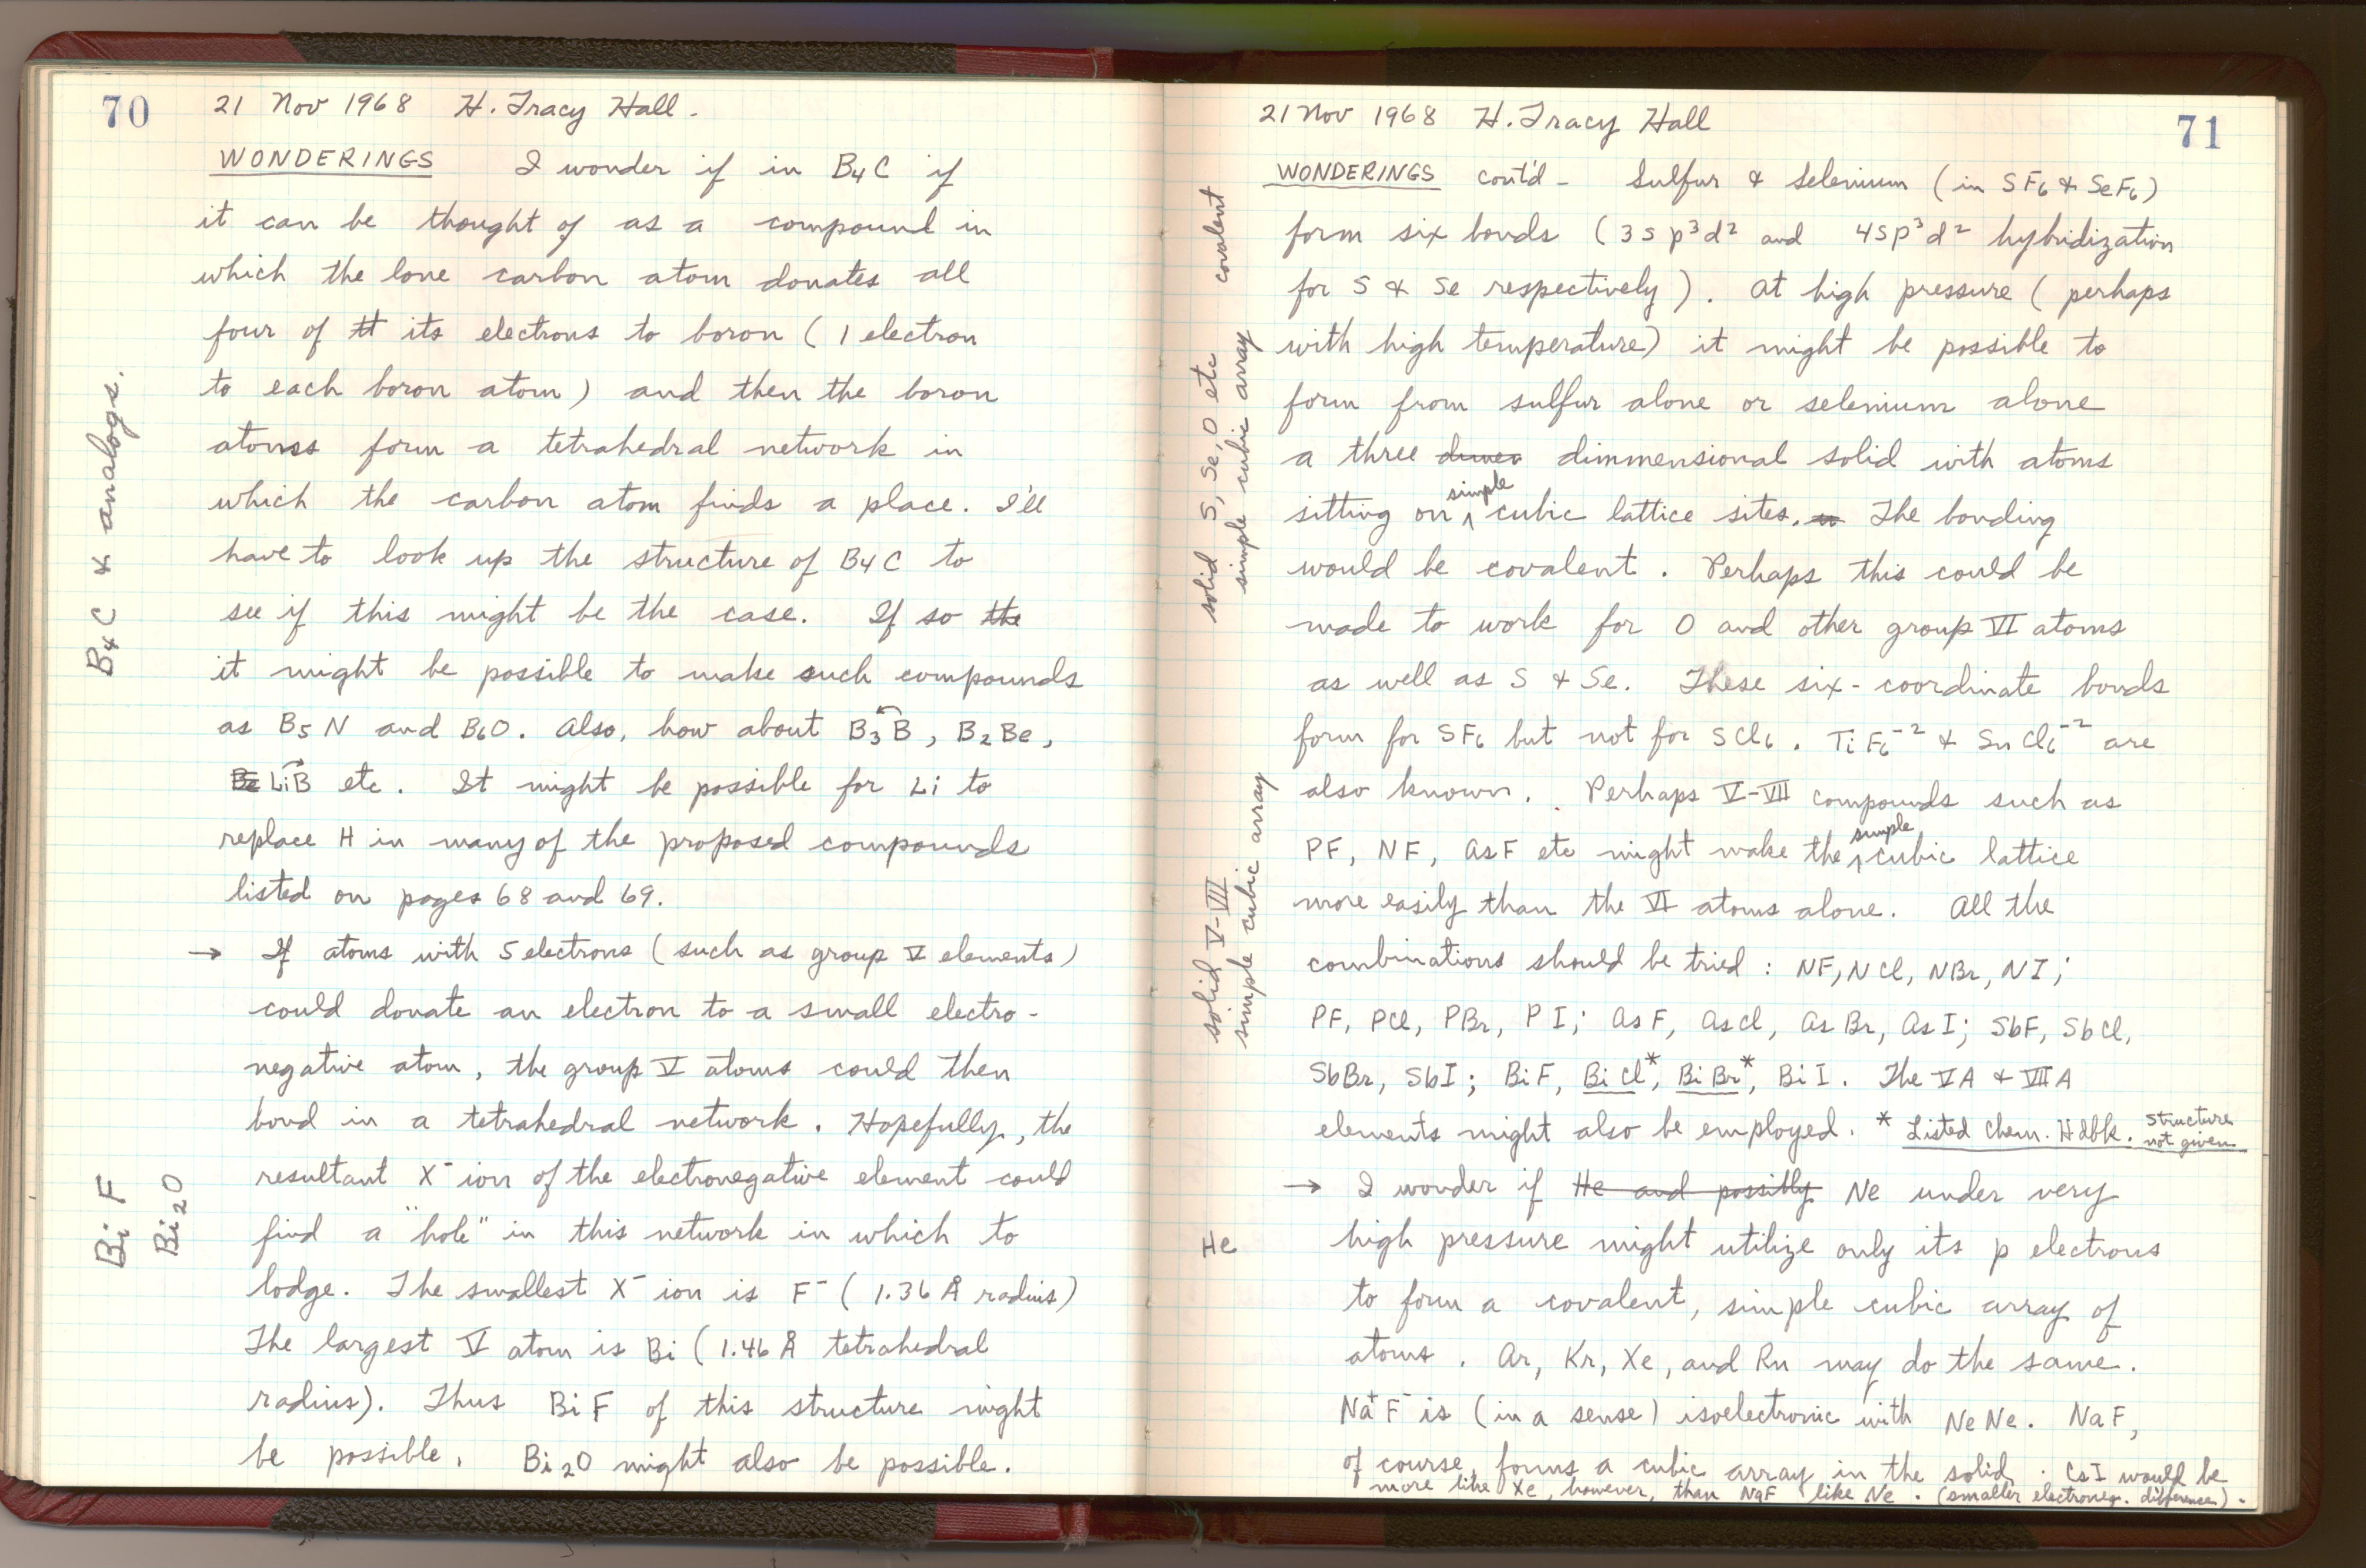 70
21 Nov 1968 H. Tracy Hall.
WONDERINGS I wonder if in B4C if
it can be thought of as a compound in
which the lone carbon atom donates all
four of tt its electrons to boron (1 electron
to each boron atom) and then the boron
atomss form a tetrahedral network in
which the carbon atom finds a place. I'll
have to look up the structure of B4C to
see if this might be the case. If so the
it might be possible to make such compounds
as B5N and B6O. Also, how about B3B, B2Be,
Be LiB etc. It might be possible for Li to
replace H in many of the proposed compounds
listed on pages 68 and 69.
→ If atoms with 5 electrons (such as group V elements)
could donate an electron to a small electro-
negative atom, the group V atoms could then
bond in a tetrahedral network. Hopefully, the
resultant X⁻ ion of the electronegative element could
find a "hole" in this network in which to
lodge. The smallest X⁻ ion is F⁻ (1.36 Å radius)
The largest V atom is Bi (1.46 Å tetrahedral
radius). Thus BiF of this structure might
be possible. Bi2O might also be possible.
B4C & analogs.
BiF
Bi2O
21 Nov 1968 H. Tracy Hall
71
WONDERINGS cont'd - Sulfur & Selenium (in SF6 & SeF6)
form six bonds (3sp³d² and 4sp³d² hybridization
for S & Se respectively). At high pressure (perhaps
with high temperature) it might be possible to
form from sulfur alone or selenium alone
a three dimen dimmensional solid with atoms
sitting on simple cubic lattice sites. The bonding
would be covalent. Perhaps this could be
made to work for O and other group VI atoms
as well as S & Se. These six-coordinate bonds
form for SF6 but not for SCl6. TiF6⁻² & SnCl6⁻² are
also known. Perhaps V-VII compounds such as
PF, NF, AsF etc might make the simple cubic lattice
more easily than the VI atoms alone. All the
combinations should be tried: NF, NCl, NBr, NI;
PF, PCl, PBr, PI; AsF, AsCl, AsBr, AsI; SbF, SbCl,
SbBr, SbI; BiF, BiCl*, BiBr*, BiI. The VA & VIIA
elements might also be employed. * Listed Chem. Hdbk. structure not given
→ I wonder if He and possibly Ne under very
high pressure might utilize only its p electrons
to form a covalent, simple cubic array of
atoms. Ar, Kr, Xe, and Rn may do the same.
Na⁺F⁻ is (in a sense) isoelectronic with NeNe. NaF,
of course, forms a cubic array in the solid. CsI would be
more like Xe, however, than NaF like Ne. (smaller electroneg. difference).
solid S, Se, O etc covalent
simple cubic array
solid V-VII
simple cubic array
He